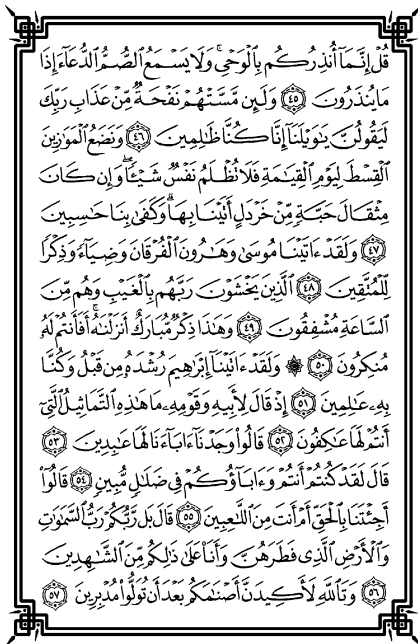 قُلۡ إِنَّمَآ أُنذِرُكُم بِٱلۡوَحۡيِۚ وَلَا يَسۡمَعُ ٱلصُّمُّ ٱلدُّعَآءَ إِذَا
مَا يُنذَرُونَ ٤٥ وَلَئِن مَّسَّتۡهُمۡ نَفۡحَةٞ مِّنۡ عَذَابِ رَبِّكَ
لَيَقُولُنَّ يَٰوَيۡلَنَآ إِنَّا كُنَّا ظَٰلِمِينَ ٤٦ وَنَضَعُ ٱلۡمَوَٰزِينَ
ٱلۡقِسۡطَ لِيَوۡمِ ٱلۡقِيَٰمَةِ فَلَا تُظۡلَمُ نَفۡسٞ شَيۡـٔٗاۖ وَإِن كَانَ
مِثۡقَالَ حَبَّةٖ مِّنۡ خَرۡدَلٍ أَتَيۡنَا بِهَاۗ وَكَفَىٰ بِنَا حَٰسِبِينَ
٤٧ وَلَقَدۡ ءَاتَيۡنَا مُوسَىٰ وَهَٰرُونَ ٱلۡفُرۡقَانَ وَضِيَآءٗ وَذِكۡرٗا
لِّلۡمُتَّقِينَ ٤٨ ٱلَّذِينَ يَخۡشَوۡنَ رَبَّهُم بِٱلۡغَيۡبِ وَهُم مِّنَ
ٱلسَّاعَةِ مُشۡفِقُونَ ٤٩ وَهَٰذَا ذِكۡرٞ مُّبَارَكٌ أَنزَلۡنَٰهُۚ أَفَأَنتُمۡ لَهُۥ
مُنكِرُونَ ٥٠ ۞ وَلَقَدۡ ءَاتَيۡنَآ إِبۡرَٰهِيمَ رُشۡدَهُۥ مِن قَبۡلُ وَكُنَّا
بِهِۦ عَٰلِمِينَ ٥١ إِذۡ قَالَ لِأَبِيهِ وَقَوۡمِهِۦ مَا هَٰذِهِ ٱلتَّمَاثِيلُ ٱلَّتِيٓ
أَنتُمۡ لَهَا عَٰكِفُونَ ٥٢ قَالُواْ وَجَدۡنَآ ءَابَآءَنَا لَهَا عَٰبِدِينَ ٥٣
قَالَ لَقَدۡ كُنتُمۡ أَنتُمۡ وَءَابَآؤُكُمۡ فِي ضَلَٰلٖ مُّبِينٖ ٥٤ قَالُوٓاْ
أَجِئۡتَنَا بِٱلۡحَقِّ أَمۡ أَنتَ مِنَ ٱللَّٰعِبِينَ ٥٥ قَالَ بَل رَّبُّكُمۡ رَبُّ ٱلسَّمَٰوَٰتِ
وَٱلۡأَرۡضِ ٱلَّذِي فَطَرَهُنَّ وَأَنَا۠ عَلَىٰ ذَٰلِكُم مِّنَ ٱلشَّٰهِدِينَ
٥٦ وَتَٱللَّهِ لَأَكِيدَنَّ أَصۡنَٰمَكُم بَعۡدَ أَن تُوَلُّواْ مُدۡبِرِينَ ٥٧